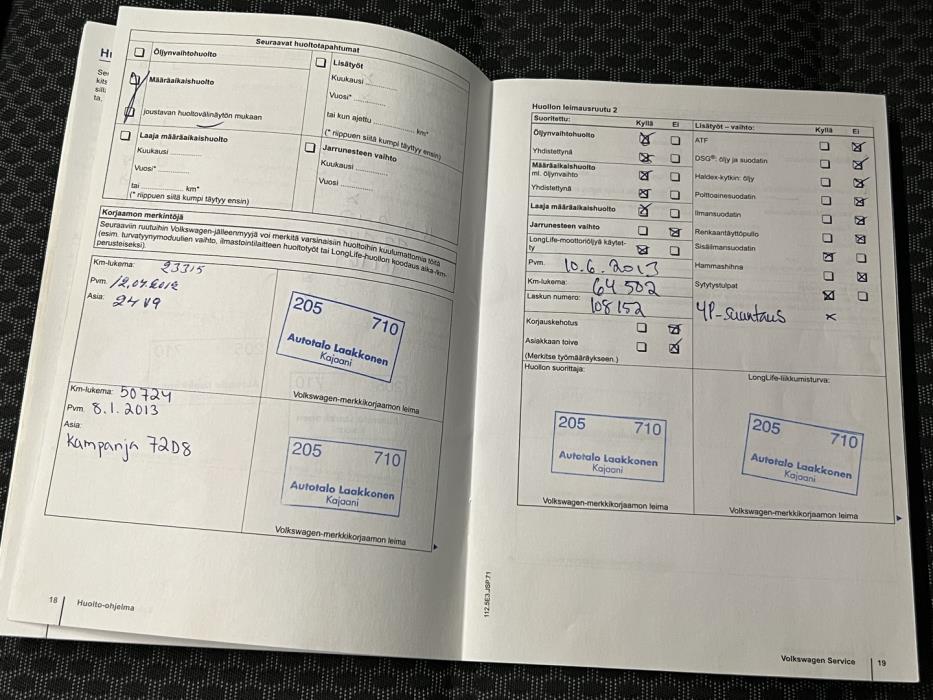 Seuraavat huoltotapahtumat
Öljynvaihtohuolto
Määräaikaishuolto
joustavan huoltovälinäytön mukaan
Laaja määräaikaishuolto
Kuukausi ............
Vuosi* ............
tai ............ km*
(* riippuen siitä kumpi täyttyy ensin)
Lisätyöt
Kuukausi ............
Vuosi* ............
tai kun ajettu ............ km*
(* riippuen siitä kumpi täyttyy ensin)
Jarrunesteen vaihto
Kuukausi ............
Vuosi ............
Korjaamon merkintöjä
Seuraaviin ruutuihin Volkswagen-jälleenmyyjä voi merkitä varsinaisiin huoltoihin kuulumattomia töitä
(esim. turvatyynymoduulien vaihto, ilmastointilaitteen huoltotyöt tai LongLife-huollon koodaus aika-/km-
perusteiseksi).
Km-lukema: 23315
Pvm. 12.04.2012
Asia: 24V9
205 710
Autotalo Laakkonen
Kajaani
Volkswagen-merkkikorjaamon leima
Km-lukema: 50724
Pvm. 8.1.2013
Asia:
Kampanja 72D8
205 710
Autotalo Laakkonen
Kajaani
Volkswagen-merkkikorjaamon leima
18
Huolto-ohjelma
Huollon leimausruutu 2
Suoritettu: Kyllä Ei
Öljynvaihtohuolto
Yhdistettynä
Määräaikaishuolto
ml. öljynvaihto
Yhdistettynä
Laaja määräaikaishuolto
Jarrunesteen vaihto
LongLife-moottoriöljyä käytet-
ty
Pvm. 10.6.2013
Km-lukema: 64502
Laskun numero: 108152
Korjauskehotus
Asiakkaan toive
(Merkitse työmääräykseen.)
Lisätyöt – vaihto: Kyllä Ei
ATF
DSG®: öljy ja suodatin
Haldex-kytkin: öljy
Polttoainesuodatin
Ilmansuodatin
Renkaantäyttöpullo
Sisäilmansuodatin
Hammashihna
Sytytystulpat
4P-suuntaus x
Huollon suorittaja:
205 710
Autotalo Laakkonen
Kajaani
Volkswagen-merkkikorjaamon leima
LongLife-liikkumisturva:
205 710
Autotalo Laakkonen
Kajaani
Volkswagen-merkkikorjaamon leima
112.5E3.JSP.71
Volkswagen Service
19